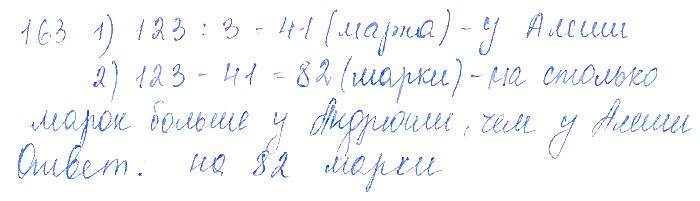 163 1) 123 : 3 = 41 (марка) - у Алеши
2) 123 - 41 = 82 (марки) - на столько
марок больше у Андрюши, чем у Алеши
Ответ: на 82 марки